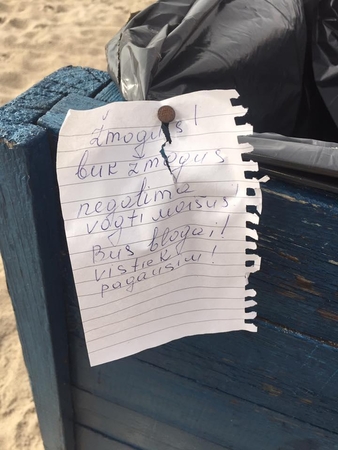 žmogus!
buk žmogus
negalima
vogti maisus!
Bus blogai!
vistiek
pagausim!